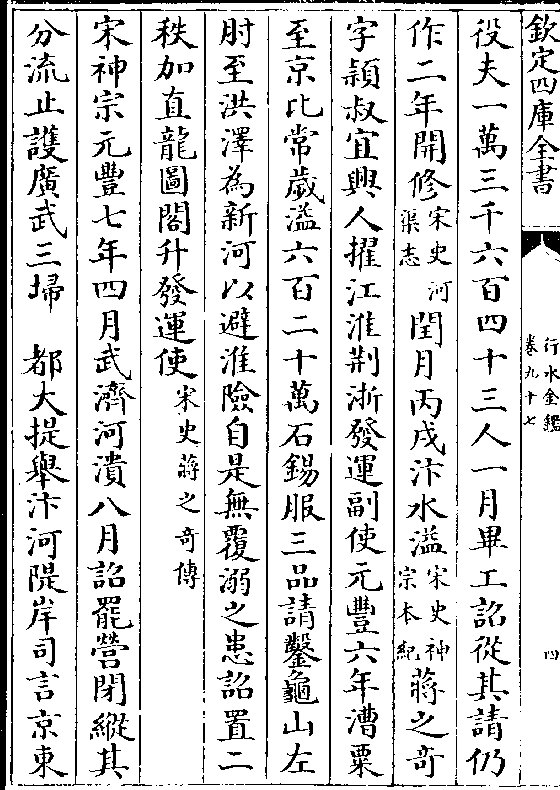 欽定四庫全書
行水金鑑
卷九十七
四
役夫一萬三千六百四十三人一月畢工詔從其請仍
作二年開修宋史河渠志閏月丙戌汴水溢宋史神宗本紀蔣之奇
字穎叔宜興人擢江淮荆浙發運副使元豐六年漕粟
至京比常歲溢六百二十萬石錫服三品請鑿龜山左
肘至洪澤為新河以避淮險自是無覆溺之患詔置二
秩加直龍圖閣升發運使宋史蔣之奇傳
宋神宗元豐七年四月武濟河潰八月詔罷營閉縱其
分流止護廣武三埽　都大提舉汴河隄岸司言京東